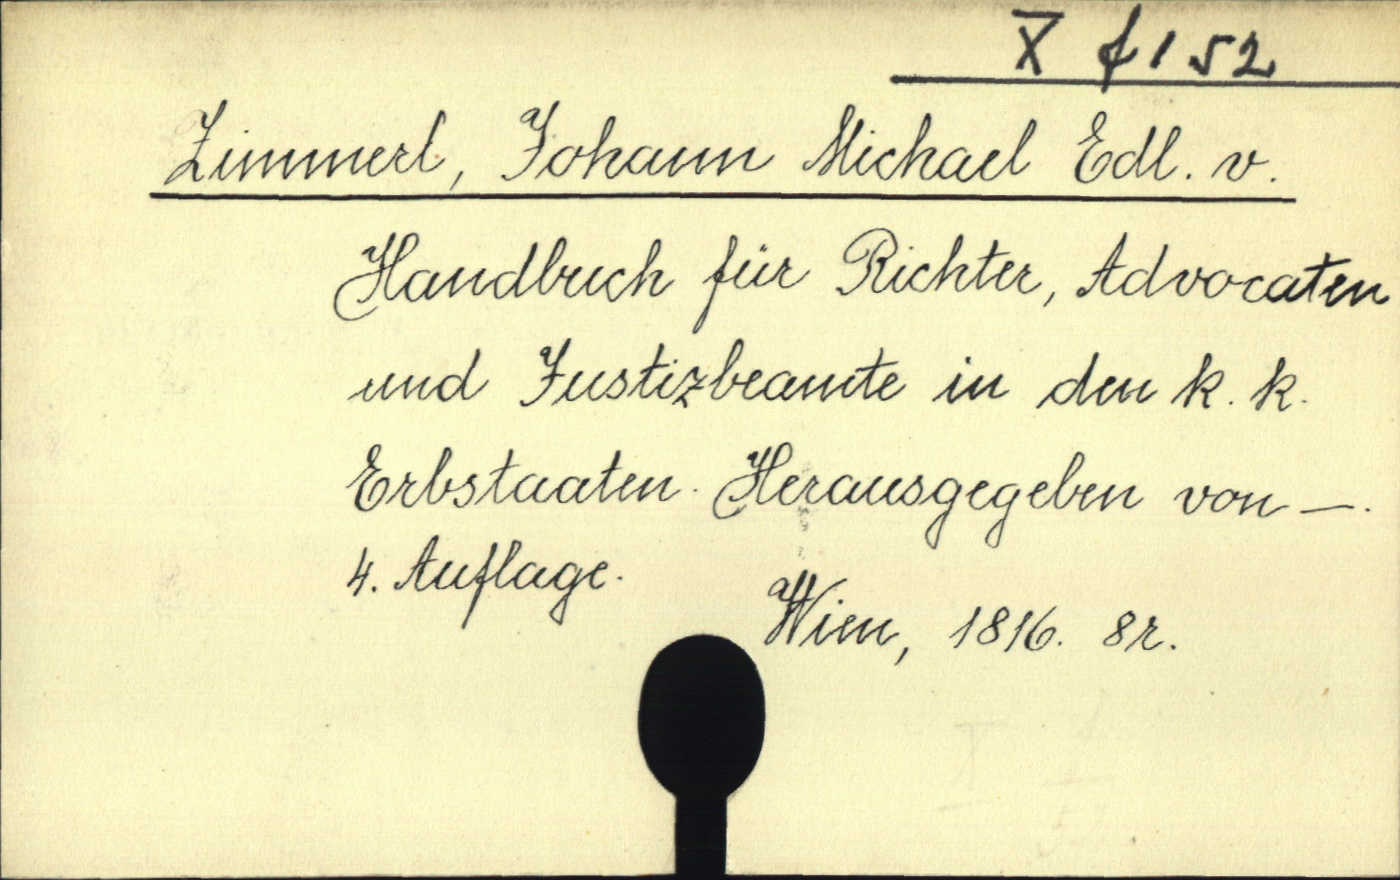 X f 152
Zimmerl, Johann Michael Edl. v.
Handbuch für Richter, Advocaten
und Justizbeamte in den k. k.
Erbstaaten. Herausgegeben von —.
4. Auflage.
Wien, 1816. 8r.